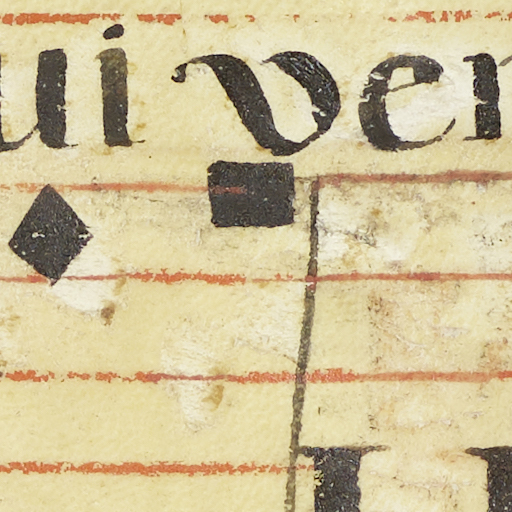 ui ver